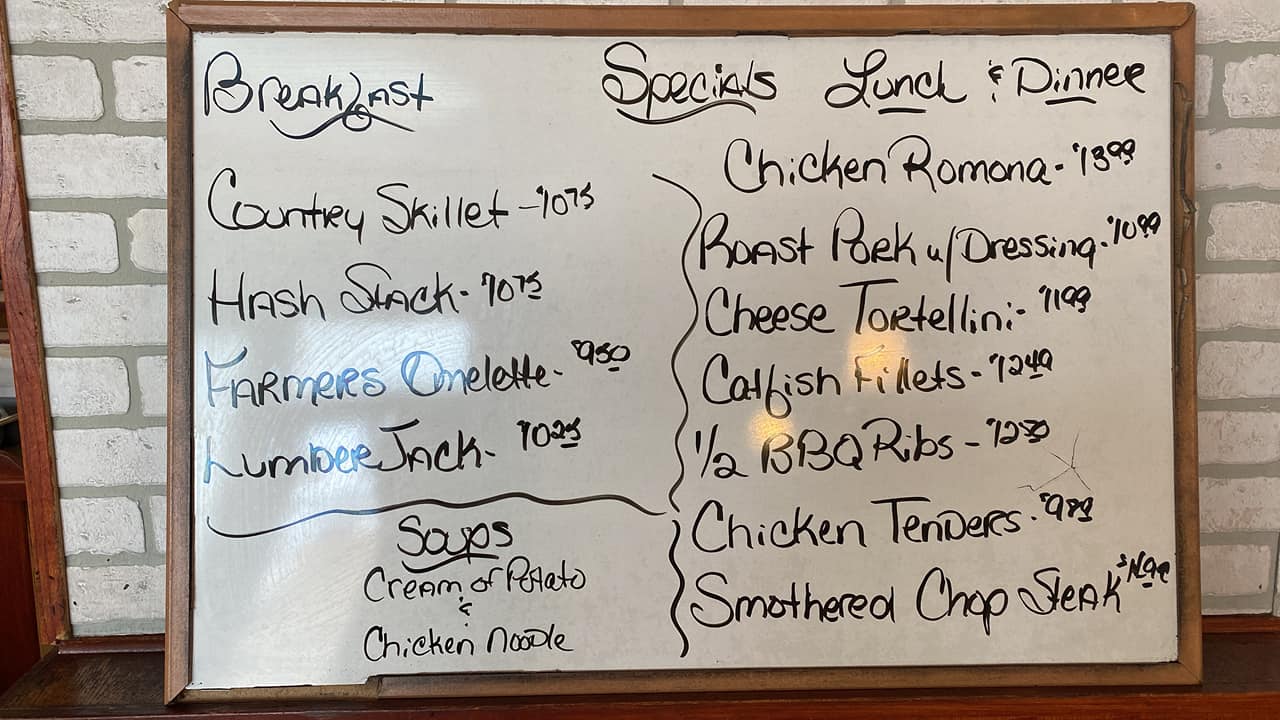 Breakfast
Country Skillet - $10.75
Hash Stack - $10.75
Farmers Omelette - $9.50
Lumber Jack - $10.25
Soups
Cream of Potato
&
Chicken Noodle
Specials Lunch & Dinner
Chicken Romona - $13.99
Roast Pork w/ Dressing - $10.99
Cheese Tortellini - $11.99
Catfish Fillets - $12.49
1/2 BBQ Ribs - $12.50
Chicken Tenders -
Smothered Chop Steak